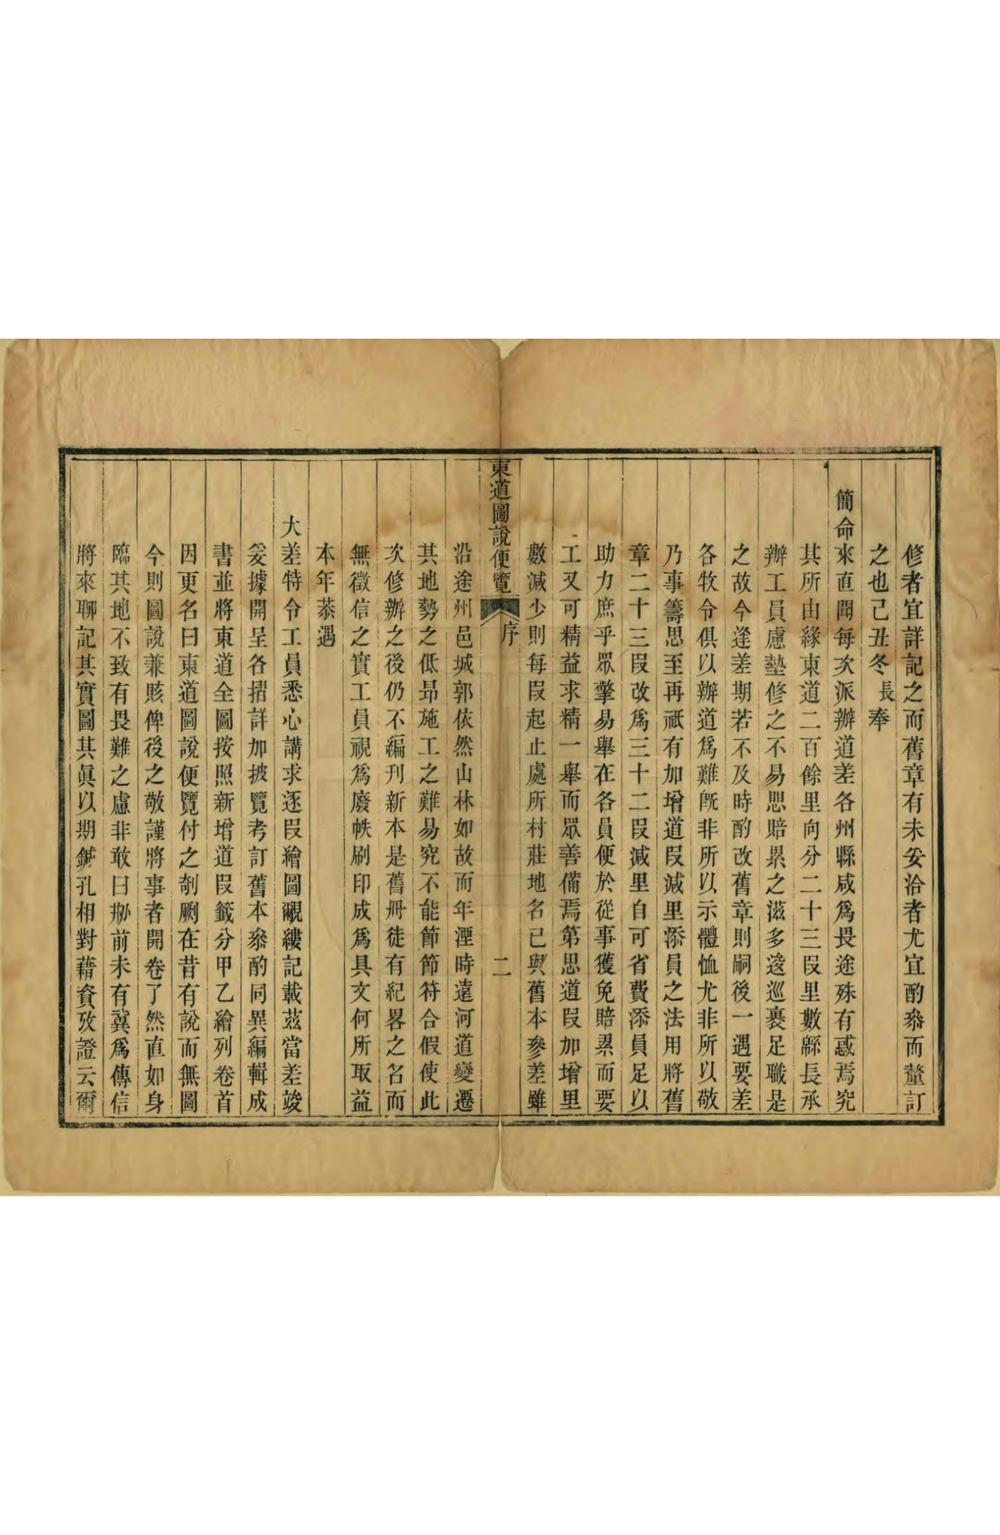 修者宜詳記之而舊章有未妥洽者尤宜酌叅而釐訂
之也己丑冬長奉
簡命來直聞每次派辦道差各州縣咸爲畏途殊有惑焉究
其所由緣東道二百餘里向分二十三叚里數緜長承
辦工員慮墊修之不易思賠累之滋多逡巡裹足職是
之故今逢差期若不及時酌改舊章則嗣後一遇要差
各牧令俱以辦道爲難旣非所以示體恤尤非所以敬
乃事籌思至再祇有加增道叚減里添員之法用將舊
章二十三叚改爲三十二叚減里自可省費添員足以
助力庶乎眾擎易舉在各員便於從事獲免賠累而要
工又可精益求精一舉而眾善備焉第思道叚加增里
數減少則每叚起止處所村莊地名已與舊本參差雖
東道圖說便覽
序
二
沿途州邑城郭依然山林如故而年湮時遠河道變遷
其地勢之低昻施工之難易究不能節節符合假使此
次修辦之後仍不編刊新本是舊冊徒有紀畧之名而
無徵信之實工員視爲廢帙刷印成爲具文何所取益
本年恭遇
大差特令工員悉心講求逐叚繪圖覼縷記載茲當差竣
妥據開呈各摺詳加披覽考訂舊本叅酌同異編輯成
書並將東道全圖按照新增道叚籤分甲乙繪列卷首
因更名曰東道圖說便覽付之剞劂在昔有說而無圖
今則圖說兼賅俾後之敬謹將事者開卷了然直如身
臨其地不致有畏難之慮非敢曰刱前未有冀爲傳信
將來聊記其實圖其眞以期鍼孔相對藉資攷證云爾